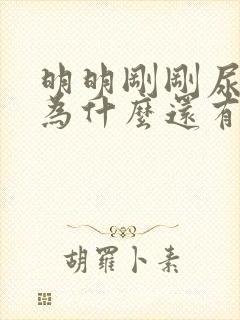 明明剛剛尿
為什麼還有
胡羅卜素